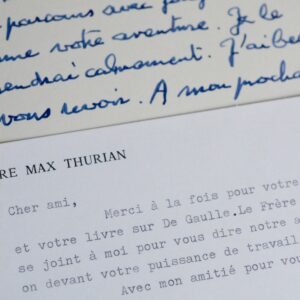 parcours avec
votre aventure. Je le
calmement. J'ai be
vous revoir. A mon procha
RE MAX THURIAN
Cher ami,
Merci à la fois pour votre
et votre livre sur De Gaulle.Le Frère
se joint à moi pour vous dire notre a
on devant votre puissance de travail
Avec mon amitié pour vo